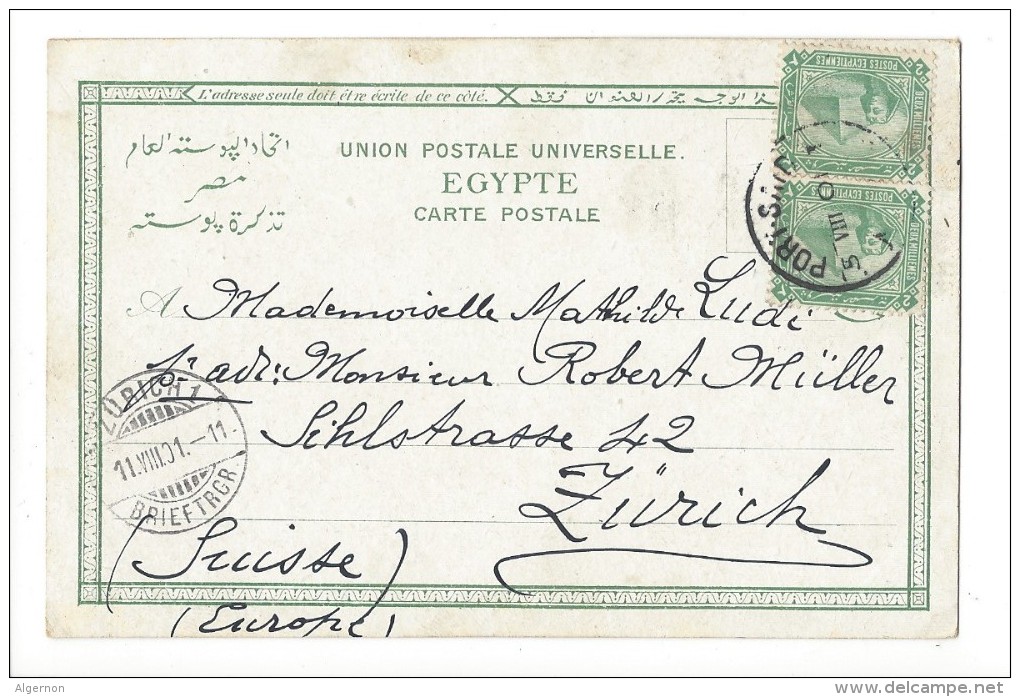 L'adresse seule doit être écrite de ce côté.
UNION POSTALE UNIVERSELLE.
EGYPTE
CARTE POSTALE
اتحاد البوستة العام
مصر
تذكرة بوستة
POSTES EGYPTIENNES
DEUX MILLIEMES
POSTES EGYPTIENNES
DEUX MILLIEMES
PORT-SAID
VIII
A Mademoiselle Mathilde Ludi
pr adr: Monsieur Robert Müller
Sihlstrasse 42
Zürich
(Suisse)
(Europe)
ZÜRICH 1
11.VIII.01.-11.
BRIEFTRGR.
Algernon
http://www.delcampe.net